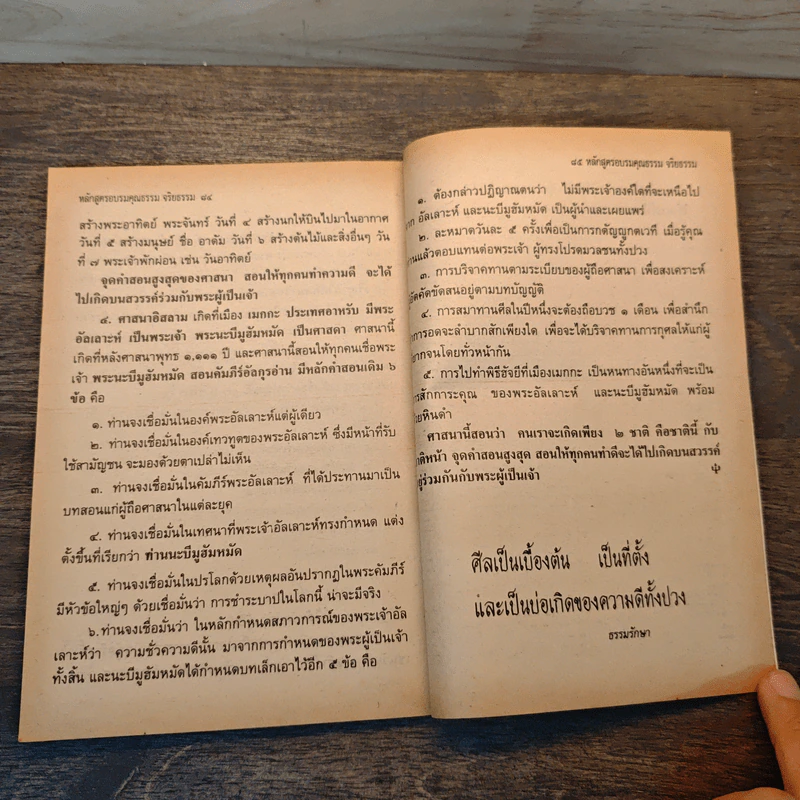 หลักสูตรอบรมคุณธรรม จริยธรรม ๘๔
สร้างพระอาทิตย์ พระจันทร์ วันที่ ๔ สร้างนกให้บินไปมาในอากาศ
วันที่ ๕ สร้างมนุษย์ ชื่อ อาดัม วันที่ ๖ สร้างต้นไม้และสิ่งอื่นๆ วัน
ที่ ๗ พระเจ้าพักผ่อน เช่น วันอาทิตย์
จุดคำสอนสูงสุดของศาสนา สอนให้ทุกคนทำความดี จะได้
ไปเกิดบนสวรรค์ร่วมกับพระผู้เป็นเจ้า
๔. ศาสนาอิสลาม เกิดที่เมือง เมกกะ ประเทศอาหรับ มีพระ
อัลเลาะห์ เป็นพระเจ้า พระนะบีมูฮัมหมัด เป็นศาสดา ศาสนานี้
เกิดที่หลังศาสนาพุทธ ๑,๑๑๑ ปี และศาสนานี้สอนให้ทุกคนเชื่อพระ
เจ้า พระนะบีมูฮัมหมัด สอนคัมภีร์อัลกุรอ่าน มีหลักคำสอนเดิม ๖
ข้อ คือ
๑. ท่านจงเชื่อมั่นในองค์พระอัลเลาะห์แต่ผู้เดียว
๒. ท่านจงเชื่อมั่นในองค์เทวทูตของพระอัลเลาะห์ ซึ่งมีหน้าที่รับ
ใช้สามัญชน จะมองด้วยตาเปล่าไม่เห็น
๓. ท่านจงเชื่อมั่นในคัมภีร์พระอัลเลาะห์ ที่ได้ประทานมาเป็น
บทสอนแก่ผู้ถือศาสนาในแต่ละยุค
๔. ท่านจงเชื่อมั่นในเทศนาที่พระเจ้าอัลเลาะห์ทรงกำหนด แต่ง
ตั้งขึ้นที่เรียกว่า ท่านนะบีมูฮัมหมัด
๕. ท่านจงเชื่อมั่นในปรโลกด้วยเหตุผลอันปรากฏในพระคัมภีร์
มีหัวข้อใหญ่ๆ ด้วยเชื่อมั่นว่า การชำระบาปในโลกนี้ น่าจะมีจริง
๖.ท่านจงเชื่อมั่นว่า ในหลักกำหนดสภาวการณ์ของพระเจ้าอัล
เลาะห์ว่า ความชั่วความดีนั้น มาจากการกำหนดของพระผู้เป็นเจ้า
ทั้งสิ้น และนะบีมูฮัมหมัดได้กำหนดบทเล็กเอาไว้อีก ๕ ข้อ คือ
๘๕ หลักสูตรอบรมคุณธรรม จริยธรรม
๑. ต้องกล่าวปฏิญาณตนว่า ไม่มีพระเจ้าองค์ใดที่จะเหนือไป
าก อัลเลาะห์ และนะบีมูฮัมหมัด เป็นผู้นำและเผยแพร่
๒. ละหมาดวันละ ๕ ครั้งเพื่อเป็นการกตัญญูกตเวที เมื่อรู้คุณ
านแล้วตอบแทนต่อพระเจ้า ผู้ทรงโปรดมวลชนทั้งปวง
๓. การบริจาคทานตามระเบียบของผู้ถือศาสนา เพื่อสงเคราะห์
ัตคัดขัดสนอยู่ตามบทบัญญัติ
๔. การสมาทานศีลในปีหนึ่งจะต้องถือบวช ๑ เดือน เพื่อสำนึก
าการอดจะลำบากสักเพียงใด เพื่อจะได้บริจาคทานการกุศลให้แก่ผู้
ากจนโดยทั่วหน้ากัน
๕. การไปทำพิธีฮัจยีที่เมืองเมกกะ เป็นหนทางอันหนึ่งที่จะเป็น
ารสักการะคุณ ของพระอัลเลาะห์ และนะบีมูฮัมหมัด พร้อม
วยหินดำ
ศาสนานี้สอนว่า คนเราจะเกิดเพียง ๒ ชาติ คือชาตินี้ กับ
าติหน้า จุดคำสอนสูงสุด สอนให้ทุกคนทำดีจะได้ไปเกิดบนสวรรค์
ยู่ร่วมกันกับพระผู้เป็นเจ้า
ศีลเป็นเบื้องต้น เป็นที่ตั้ง
และเป็นบ่อเกิดของความดีทั้งปวง
ธรรมรักษา